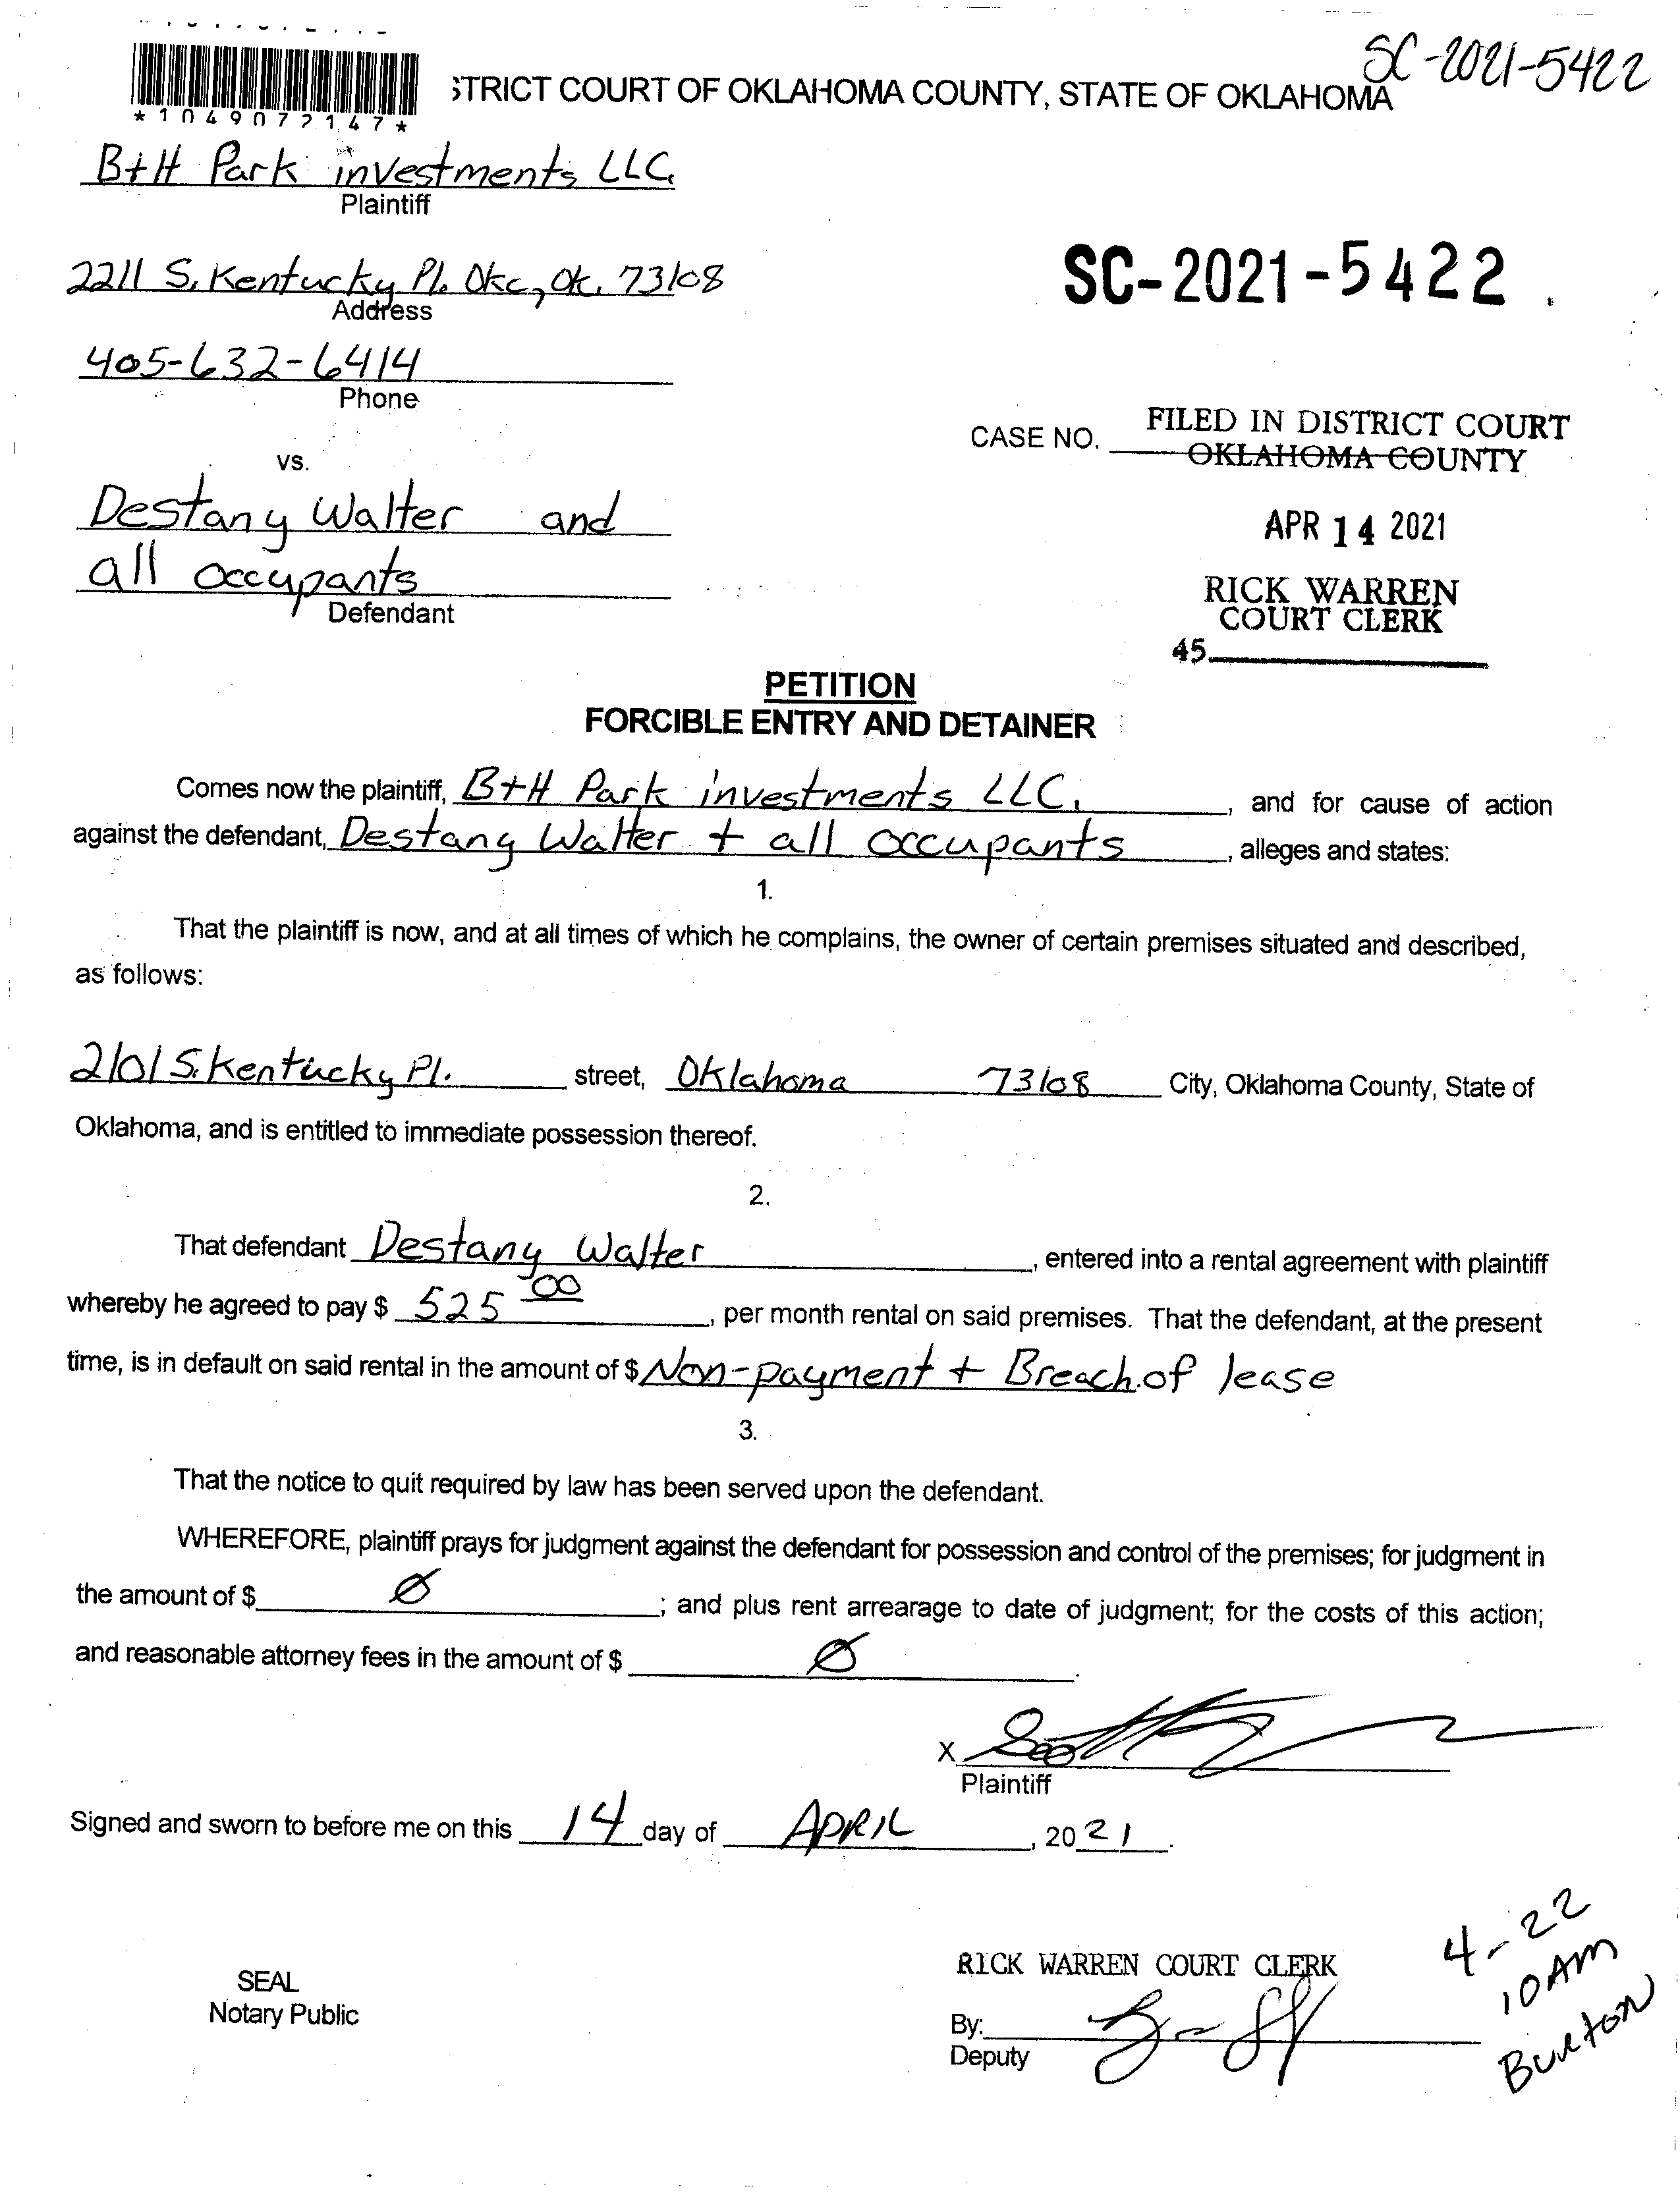 SC-2021-5422
STRICT COURT OF OKLAHOMA COUNTY, STATE OF OKLAHOMA
*1049072147*
B+H Park investments LLC.
Plaintiff
2211 S. Kentucky Pl. Okc, Ok. 73108
Address
SC-2021-5422
405-632-6414
Phone
CASE NO. FILED IN DISTRICT COURT
OKLAHOMA COUNTY
vs.
Destany Walter and
all occupants
Defendant
APR 14 2021
RICK WARREN
COURT CLERK
45
PETITION
FORCIBLE ENTRY AND DETAINER
Comes now the plaintiff, B+H Park investments LLC. , and for cause of action
against the defendant, Destany Walter + all occupants , alleges and states:
1.
That the plaintiff is now, and at all times of which he complains, the owner of certain premises situated and described,
as follows:
2101 S. Kentucky Pl. street, Oklahoma 73108 City, Oklahoma County, State of
Oklahoma, and is entitled to immediate possession thereof.
2.
That defendant Destany Walter , entered into a rental agreement with plaintiff
whereby he agreed to pay $ 525 00 , per month rental on said premises. That the defendant, at the present
time, is in default on said rental in the amount of $ Non-payment + Breach of lease
3.
That the notice to quit required by law has been served upon the defendant.
WHEREFORE, plaintiff prays for judgment against the defendant for possession and control of the premises; for judgment in
the amount of $ Ø ; and plus rent arrearage to date of judgment; for the costs of this action;
and reasonable attorney fees in the amount of $ Ø .
X
Plaintiff
Signed and sworn to before me on this 14 day of APRIL , 2021 .
SEAL
Notary Public
RICK WARREN COURT CLERK
By:
Deputy
4-22
10 AM
Burton